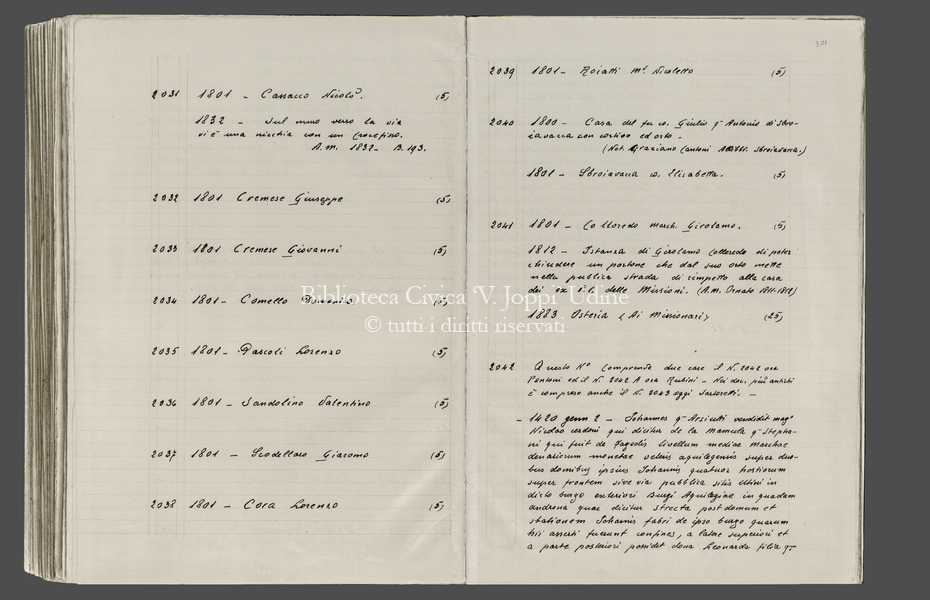 2031 1801 - Cassacco Nicolò. (5)
1832 - Sul muro verso la via
vi è una nicchia con un Crocefisso.
A.M. 1832 - B. 193.
2032 1801 Cremese Giuseppe (5)
2033 1801 Cremese Giovanni (5)
2034 1801 - Comello (5)
2035 1801 - Pascoli Lorenzo (5)
2036 1801 - Sandolino Valentino (5)
2037 1801 - Scodellaro Giacomo (5)
2038 1801 - Cora Lorenzo (5)
301
2039 1801 - Roiatti Mª Nicoletto (5)
2040 1800 - Casa del fu co. Giulio q- Antonio di Sbro-
iavacca con cortivo ed orto -
(Not. Graziano Cantoni Sbroiavacca.)
1801 - Sbroiavacca co. Elisabetta. (5)
2041 1801 - Colloredo march. Girolamo. (5)
1812 - Istanza di Girolamo Colloredo di poter
chiudere un portone che dal suo orto mette
nella pubblica strada di rimpetto alla casa
dei ex delle Missioni. (A.M. Ornato 1811-1812)
1883. Osteria < Ai Missionari > (25)
2042 Questo Nº comprende due case il N. 2042 ora
Pontoni ed il N. 2042 A ora Rubini - Nei doc. più antichi
è compreso anche il N. 2043 oggi Sartoretti. -
- 1420 genn 2 - Johannes q- Arsiutti vendidit magº
Nicolao cerdoni qui dicitur de la Mamula q- Stepha-
ni qui fuit de Fagedis livellum mediae marchae
denariorum monetae veteris aquilegensis super dua-
bus domibus ipsius Johannis quatuor hostiorum
super frontem sive via pubblica sitis Utini in
dicto burgo exteriori Burgi Aquilegiae in quadam
androna quae dicitur strecta post domum et
stationem Johannis fabri de ipso burgo quarum
hii asserti fuerunt confines, a latere superiori et
a parte posteriori possidet dona Leonarda filia q-
Biblioteca Civica 'V. Joppi' Udine
© tutti i diritti riservati